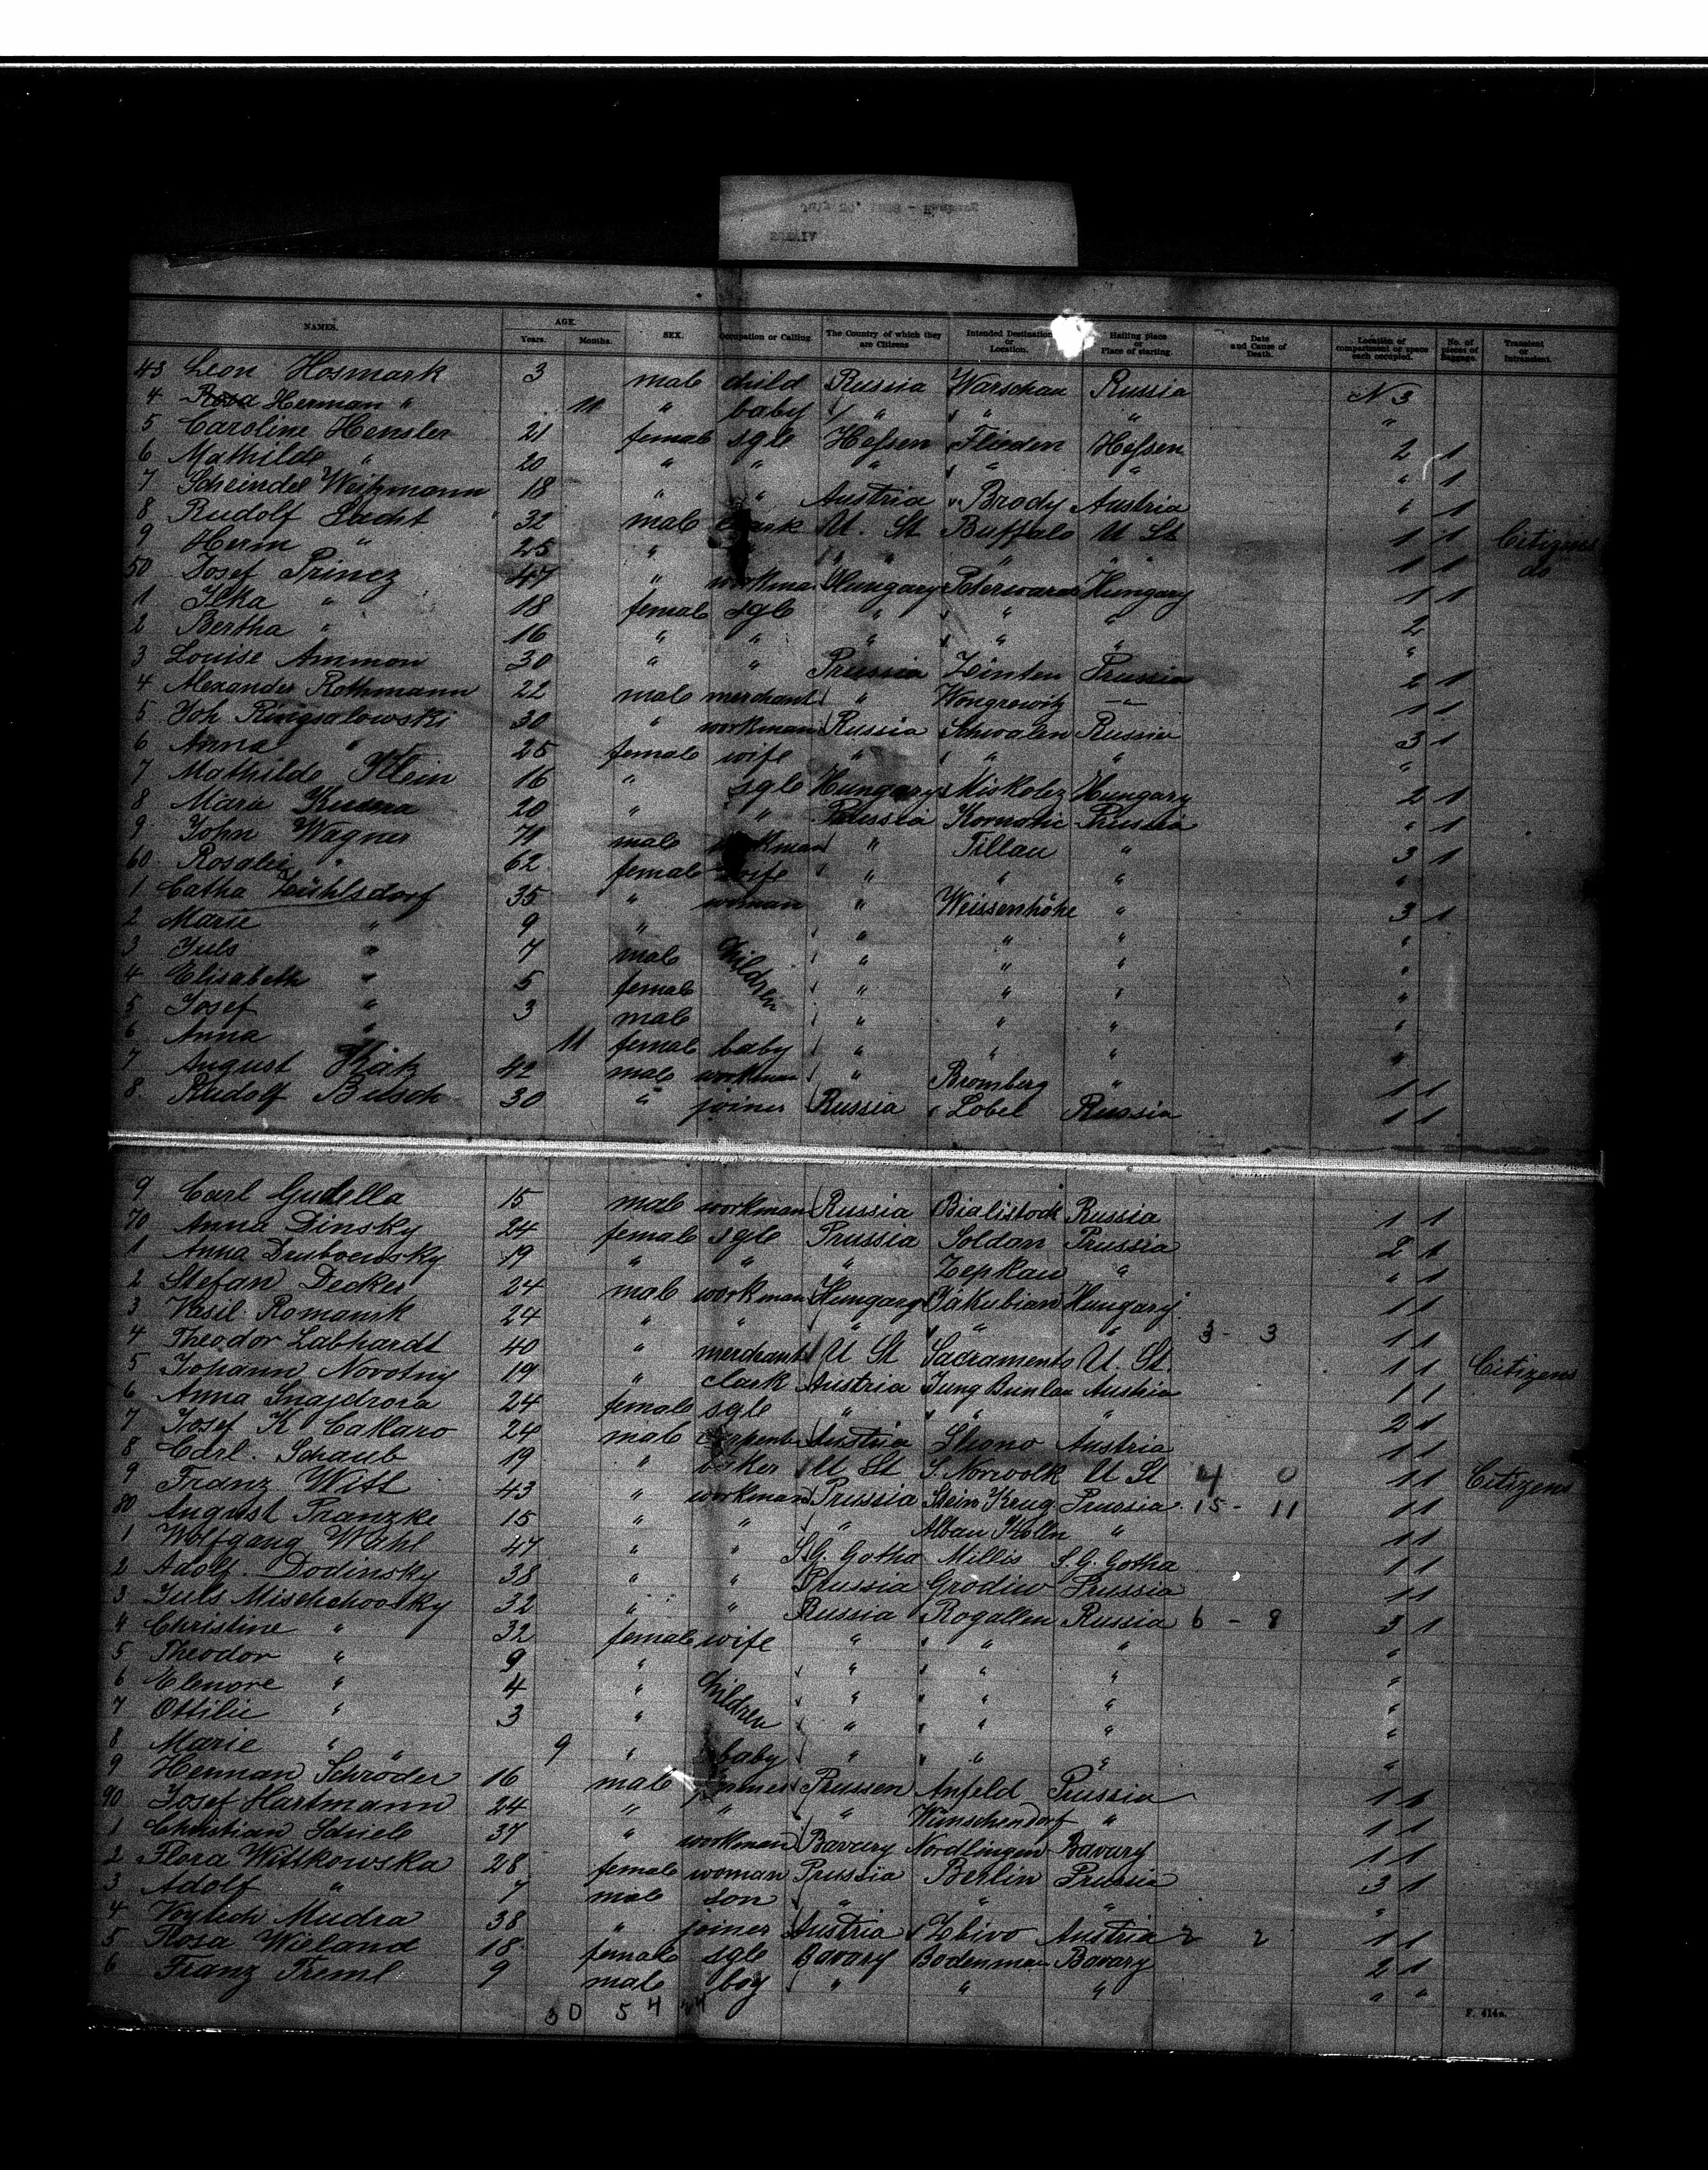 NAMES. AGE. Years. Months. SEX. Occupation or Calling. The Country of which they are Citizens Intended Destination or Location. Hailing place or Place of starting. Date and Cause of Death. Location of compartment or space each occupied. No. of pieces of Baggage. Transient or Intransient.
43 Leon Hosmark 3 male child Russia Warschau Russia N 3
4 Rosa Herman " 11 " baby " " " "
5 Caroline Hensler 21 female sgle Hessen Flieden Hessen 2 1
6 Mathilde " 20 " " " " " " 1
7 Scheindel Weitzmann 18 " " Austria Brody Austria " 1
8 Rudolf Lacht 32 male U. St Buffalo U St 1 1 Citizens
9 Herm " 25 " " " " 1 1 do
50 Josef Princz 47 " workman Hungary Hungary 1 1
1 Ilka " 18 female sgle " " " 2
2 Bertha " 16 " " " " " "
3 Louise Ammon 30 " " Prussia Zinten Prussia 2 1
4 Alexander Rothmann 22 male merchant " Wongrowitz —"— 1 1
5 Joh Ringsalowski 30 " workman Russia Schwalen Russia 3 1
6 Anna " 25 female wife " " " "
7 Mathilde Klein 16 " sgle Hungary Miskolcz Hungary 2 1
8 Marie 20 " " Prussia Prussia " 1
9 John Wagner 71 male workman " Tillau " 3 1
60 Rosalie " 62 female wife " " " "
1 Catha Zühlsdorf 35 " woman " Weissenhöhe " 3 1
2 Marie " 9 " children " " " "
3 Juls " 7 male " " " "
4 Elisabeth " 5 female " " " "
5 Josef " 3 male " " " "
6 Anna " 11 female baby " " " "
7 August 42 male workman " Bromberg " 1 1
8 Rudolf 30 " joiner Russia Lobel Russia 1 1
9 Carl Gudella 15 male workman Russia Bialistock Russia 1 1
70 Anna Dinsky 24 female sgle Prussia Soldan Prussia 2 1
1 Anna 19 " " " Zepkau " " 1
2 Stefan Decker 24 male workman Hungary Jakubian Hungary 1 1
3 Vasil Romanik 24 " " " " " 3 - 3 1 1
4 Theodor Labhardt 40 " merchant U St Sacramento U. St. 1 1 Citizens
5 Johann Novotny 19 " clark Austria Jung Bunlau Austria 1 1
6 Anna Snajdrova 24 female sgle " " " 2 1
7 Josef K Cakaro 24 male carpent Austria Austria 1 1
8 Carl. Schaub 19 " baker U St S. Norwolk U St 4 0 1 1 Citizens
9 Franz Witt 43 " workman Prussia Stein Krug Prussia 15 - 11 1 1
80 August Pranzke 15 " " " " 1 1
1 Wolfgang Wahl 47 " " S.G. Gotha Millis S.G. Gotha 1 1
2 Adolf. Dodinsky 38 " " Prussia Grodiw Prussia 1 1
3 Juls Mischchovsky 32 " " Russia Rogallen Russia 6 - 8 3 1
4 Christine " 32 female wife " " " "
5 Theodor " 9 " children " " " "
6 Elenore " 4 " " " " "
7 Ottilie " 3 " " " " "
8 Marie " " 9 " baby " " " "
9 Herman Schröder 16 male Prussen Anfeld Prussia 1 1
90 Josef Hartmann 24 " " " Wünschendorf " 1 1
1 Christian Schiele 37 " workman Bavary Nordlingen Bavary 1 1
2 Flora Wittkowska 28 female woman Prussia Berlin Prussia 3 1
3 Adolf " 7 male son " " " "
4 Vojtech Mudra 38 " joiner Austria Zbivo Austria 2 2 1 1
5 Rosa Wieland 18 female sgle Bavary Bavary 2 1
6 Franz Treml 9 male boy " " " " "
30 54 44
F. 414a.